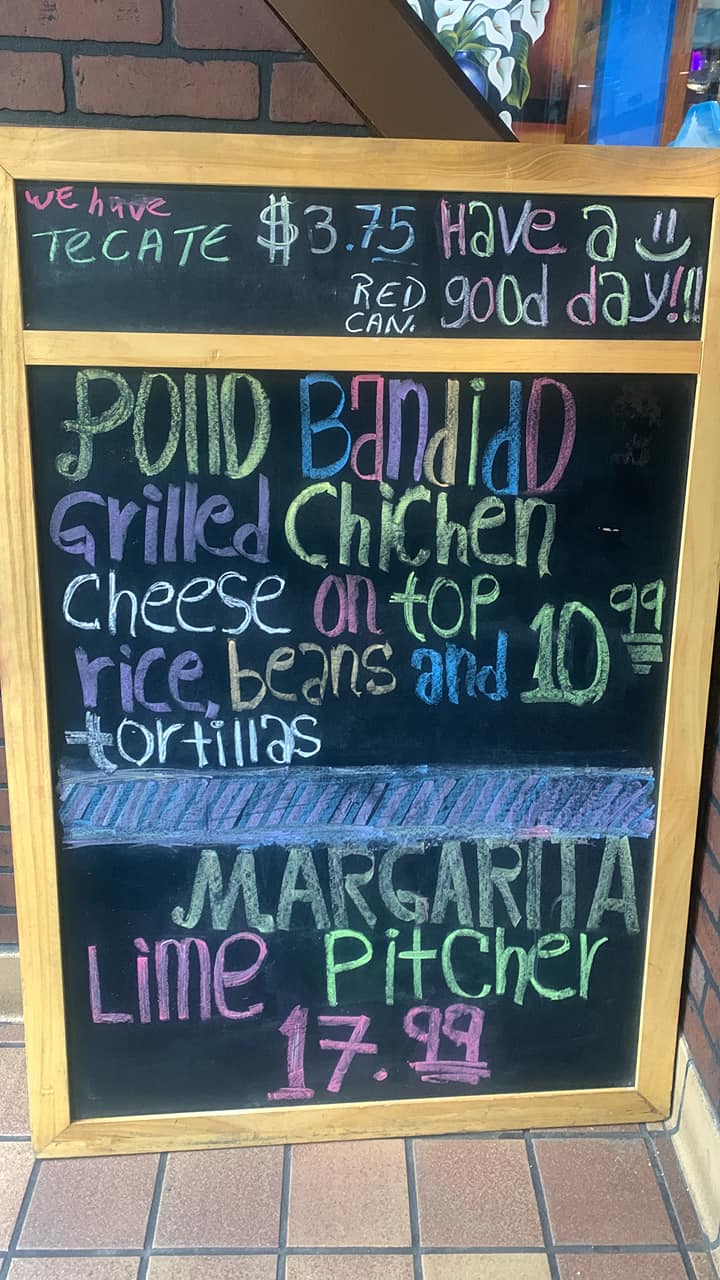 WE have
TeCATE $3.75
RED
CAN.
Have a
good day!!!
POllO BandidO
Grilled Chichen
Cheese on top
rice, beans and 10 99
tortillas
MARGARITA
Lime Pitcher
17.99